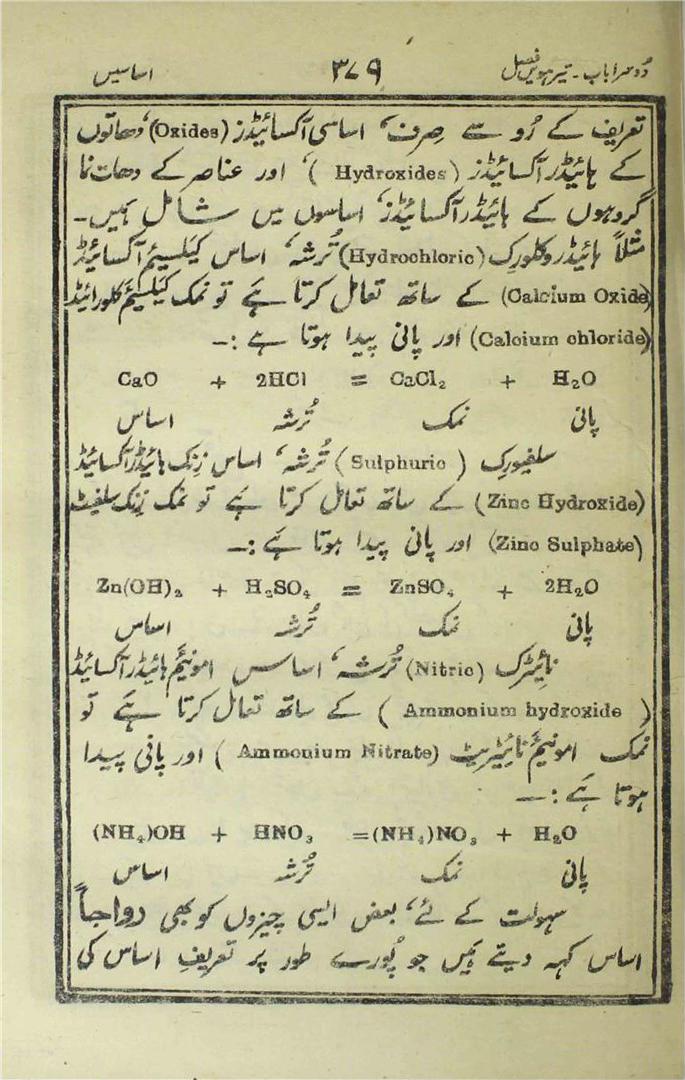 دُوسرا باب۔ تیرہویں فصل ۳۷۹ اساسیں
تعریف کے رُو سے صِرف، اساسی آکسائیڈز (Oxides)، دھاتوں
کے ہائیڈرآکسائیڈز (Hydroxides)، اور عناصر کے دھات نما
گروہوں کے ہائیڈرآکسائیڈز، اساسوں میں شامل ہیں۔
مثلاً ہائیڈروکلورِک (Hydrochloric) تُرشہ، اساس کیلسیئم آکسائیڈ
(Calcium Oxide) کے ساتھ تعامل کرتا ہے تو نمک کیلسیئم کلورائیڈ
(Calcium chloride) اور پانی پیدا ہوتا ہے :۔
CaO + 2HCl = CaCl₂ + H₂O
اساس تُرشہ نمک پانی
سلفیورِک (Sulphuric) تُرشہ، اساس زِنک ہائیڈرآکسائیڈ
(Zinc Hydroxide) کے ساتھ تعامل کرتا ہے تو نمک زِنک سلفیٹ
(Zinc Sulphate) اور پانی پیدا ہوتا ہے :۔
Zn(OH)₂ + H₂SO₄ = ZnSO₄ + 2H₂O
اساس تُرشہ نمک پانی
نائیٹرک (Nitric) تُرشہ، اساس امونیئم ہائیڈرآکسائیڈ
(Ammonium hydroxide) کے ساتھ تعامل کرتا ہے تو
نمک امونیئم نائیٹریٹ (Ammonium Nitrate) اور پانی پیدا
ہوتا ہے :۔
(NH₄)OH + HNO₃ =(NH₄)NO₃ + H₂O
اساس تُرشہ نمک پانی
سہولت کے لئے، بعض ایسی چیزوں کو بھی رواجاً
اساس کہہ دیتے ہیں جو پُورے طور پر تعریفِ اساس کی